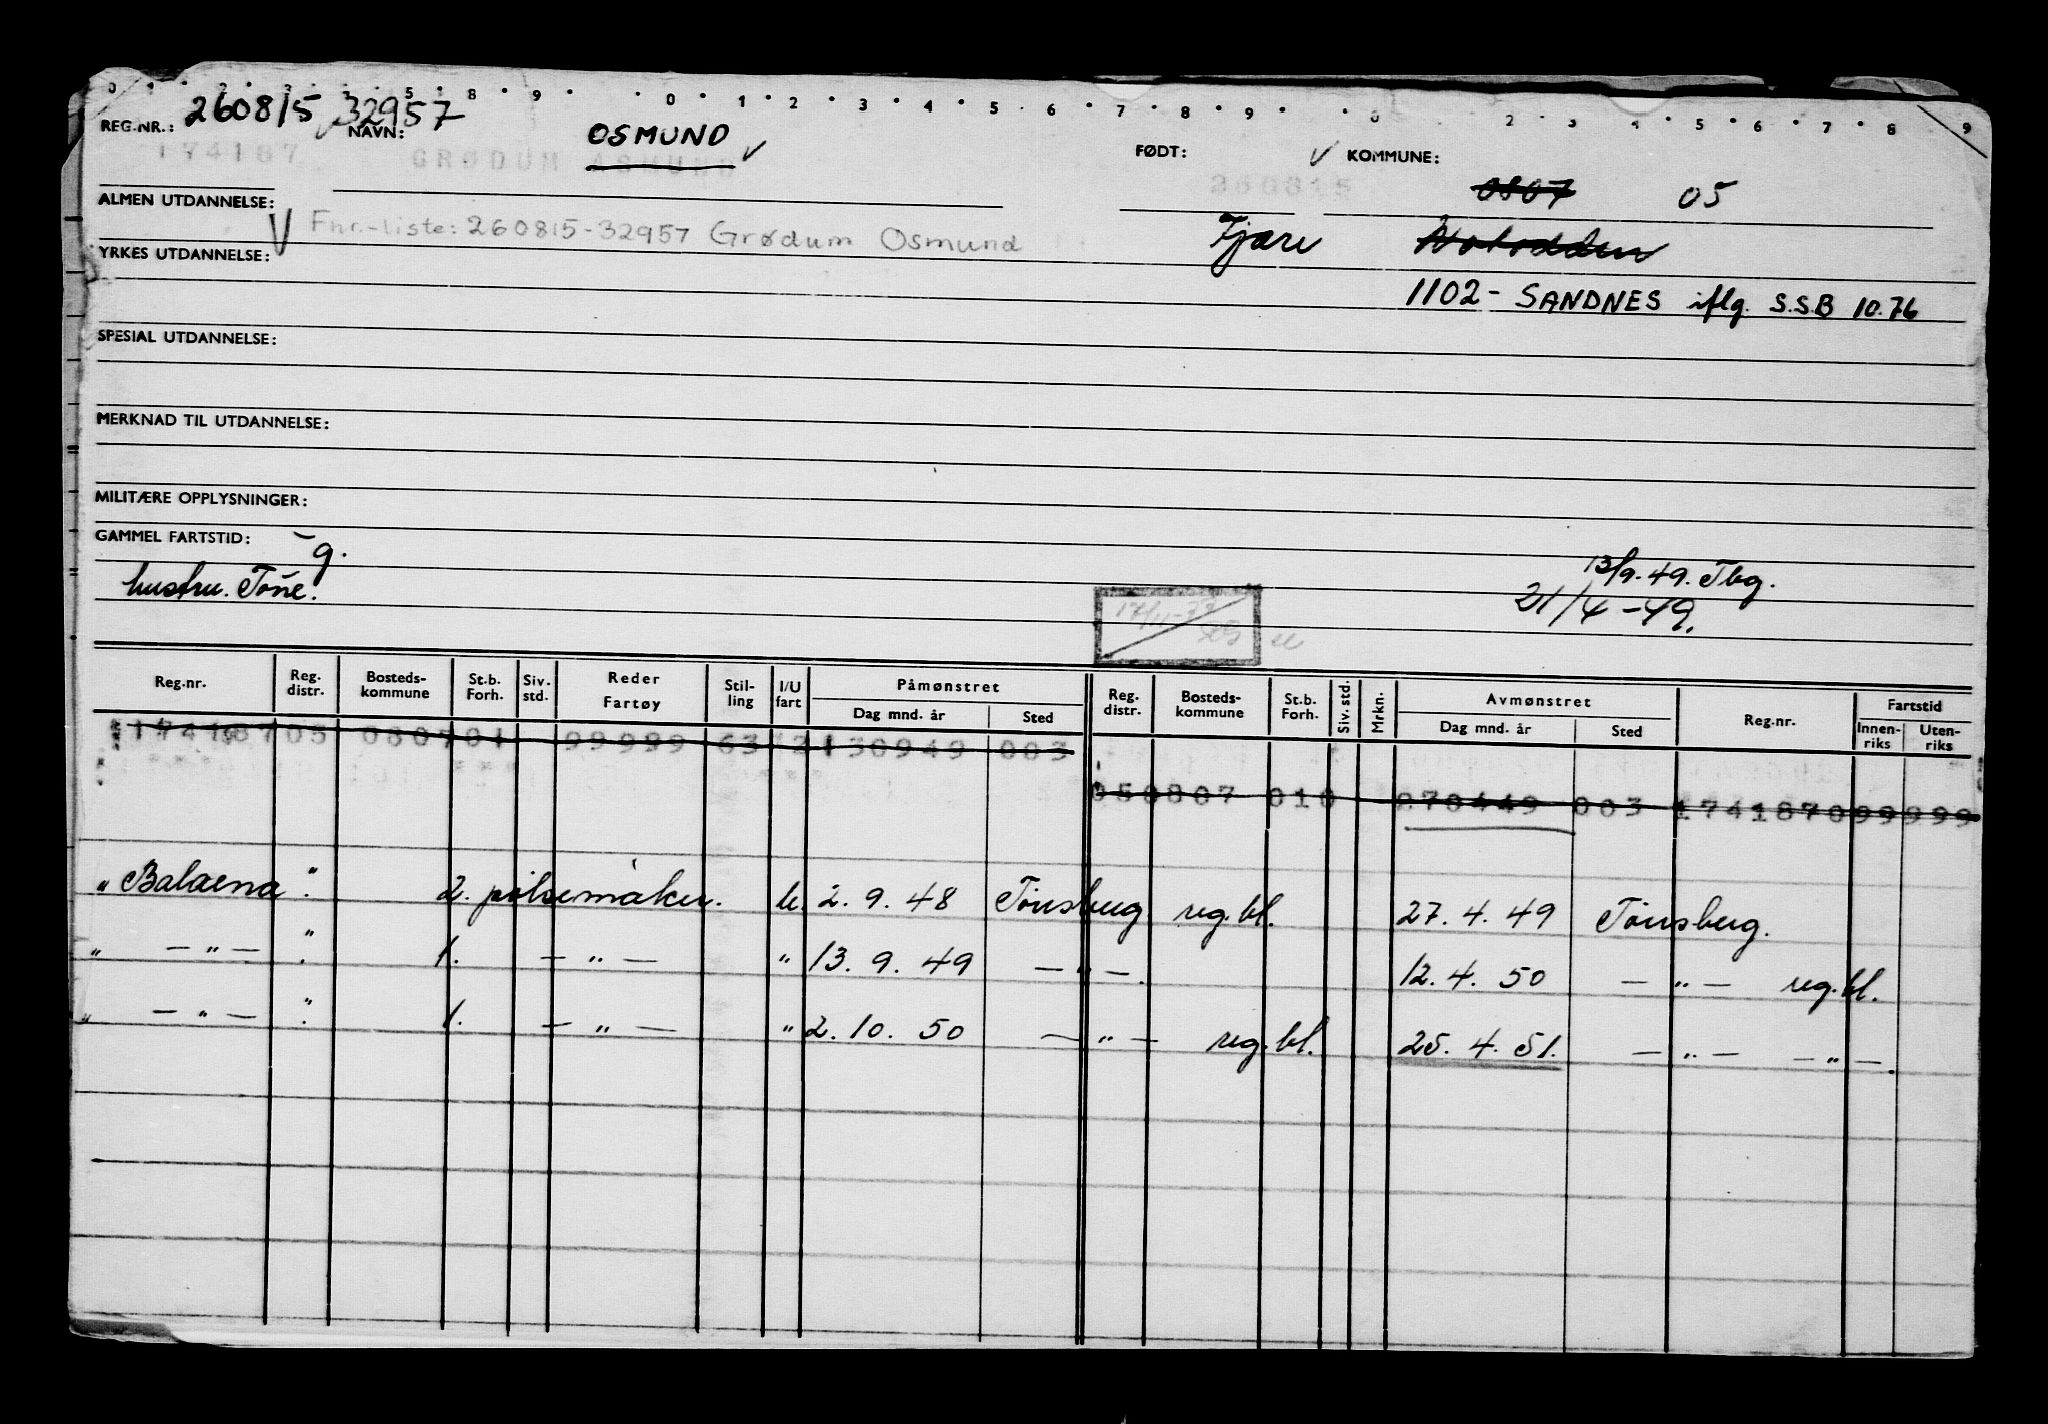 0 1 2 3 5 8 9 0 1 2 3 4 5 6 7 8 9 0 2 3 4 5 6 7 8 9
REG.NR.: 260815 32957 NAVN: OSMUND FØDT: KOMMUNE:
174187 GRØDUM ASMUND 260815 0807 05
ALMEN UTDANNELSE:
Fnr.-liste: 260815-32957 Grødum Osmund Fjære Notodden
YRKES UTDANNELSE:
1102 - SANDNES iflg. S.S.B 10.76
SPESIAL UTDANNELSE:
MERKNAD TIL UTDANNELSE:
MILITÆRE OPPLYSNINGER:
GAMMEL FARTSTID: g.
13/9.49. Tbg.
hustru. Tone. 21/4-49.
Reg.nr. Reg. distr. Bosteds- kommune St.b. Forh. Siv. std. Reder Fartøy Stil- ling I/U fart Påmønstret Dag mnd. år Sted Reg. distr. Bosteds- kommune St.b. Forh. Siv. std. Mrkn. Avmønstret Dag mnd. år Sted Reg.nr. Fartstid Innen- riks Uten- riks
174187 05 0807 01 99999 63 2 130949 003
050807 010 270449 003 174187 099999
"Balaena". 2. pølsemaker. u. 2. 9. 48 Tønsberg reg. bl. 27. 4. 49 Tønsberg.
" — " — ". 1. — " — " 13. 9. 49 — " —. 12. 4. 50 — " — reg. bl.
" — " — ". 1. — " — " 2. 10. 50 — " — reg. bl. 25. 4. 51. — " — — " —.